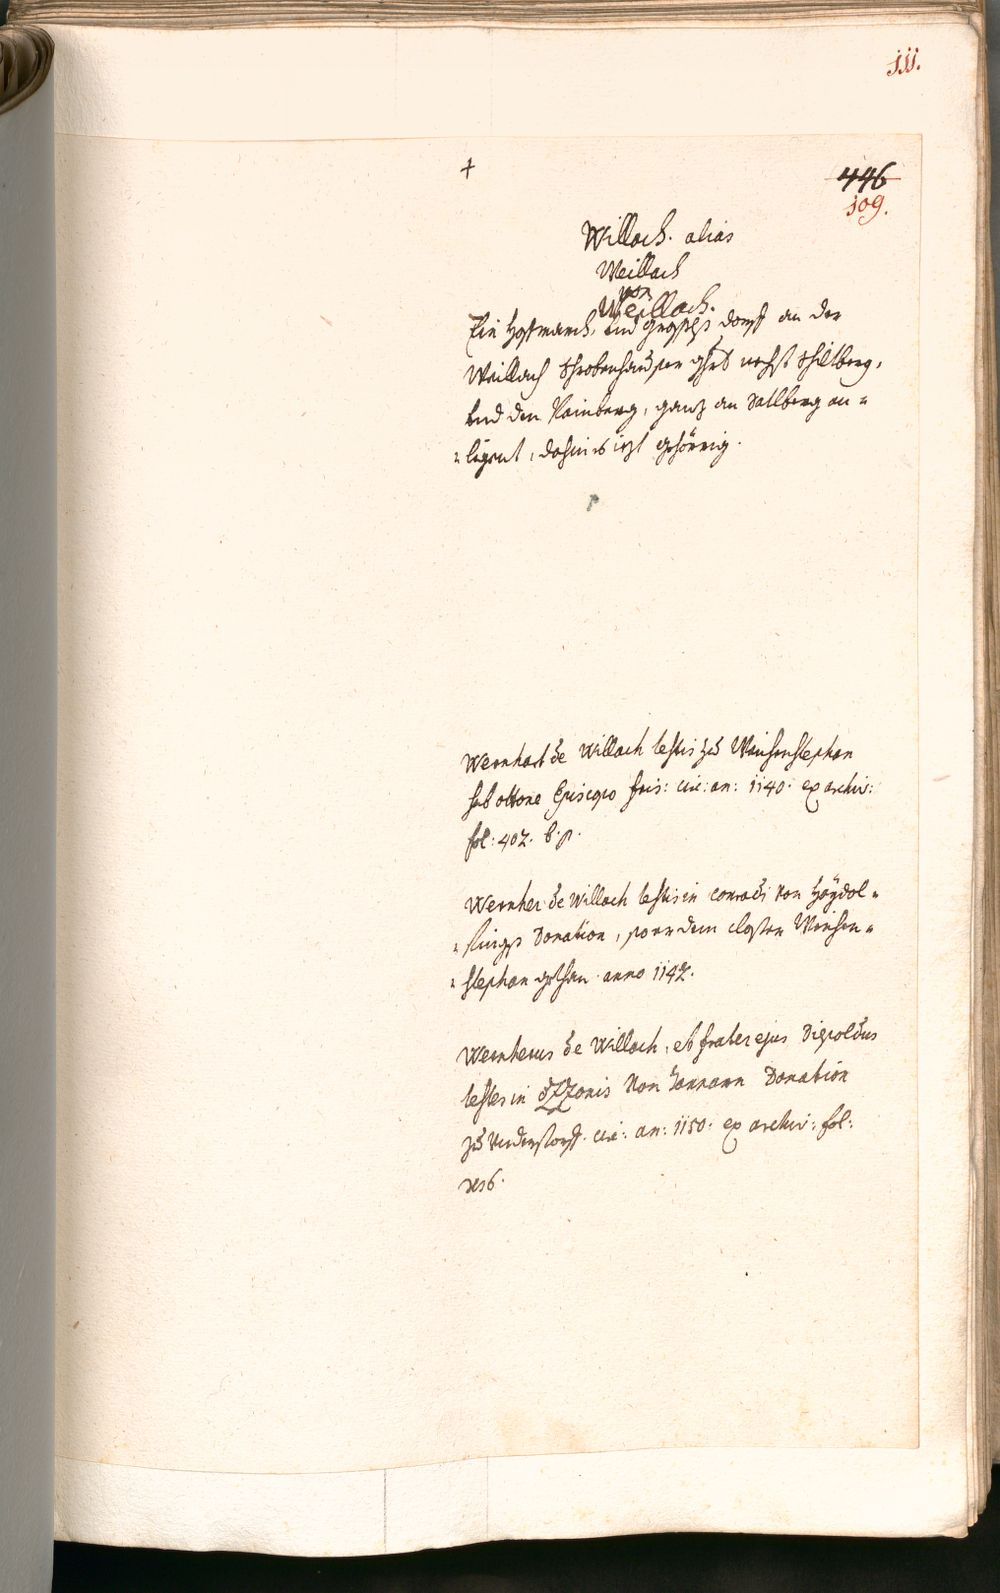 jjj.
+
446
109.
Willach. alias
Weillach
von
Weillach.
Ein Hofmarch, vnd grosses dorff an der
Weillach Schrobenhauser ghrt nechst Schiltberg,
vnd den Rainberg, ganz an Sattlberg an=
=ligent, dahin es iezt gehörrig.
p
Wernhart de Willach testis zu Weichenstephan
sub ottone Episcopo fris: cir: an: 1140. ex archiv:
fol: 402. b. p.
Wernher de Willach testis in conradi von Höÿdol=
=fings Donation, so er dem closter Weichen=
=stephan gethan anno 1142.
Wernherus de Willach, et frater ejus Diepoldus
testes in Ozzonis von Donation
zu Vnderstorff. cir: an: 1150. ex archiv: fol: